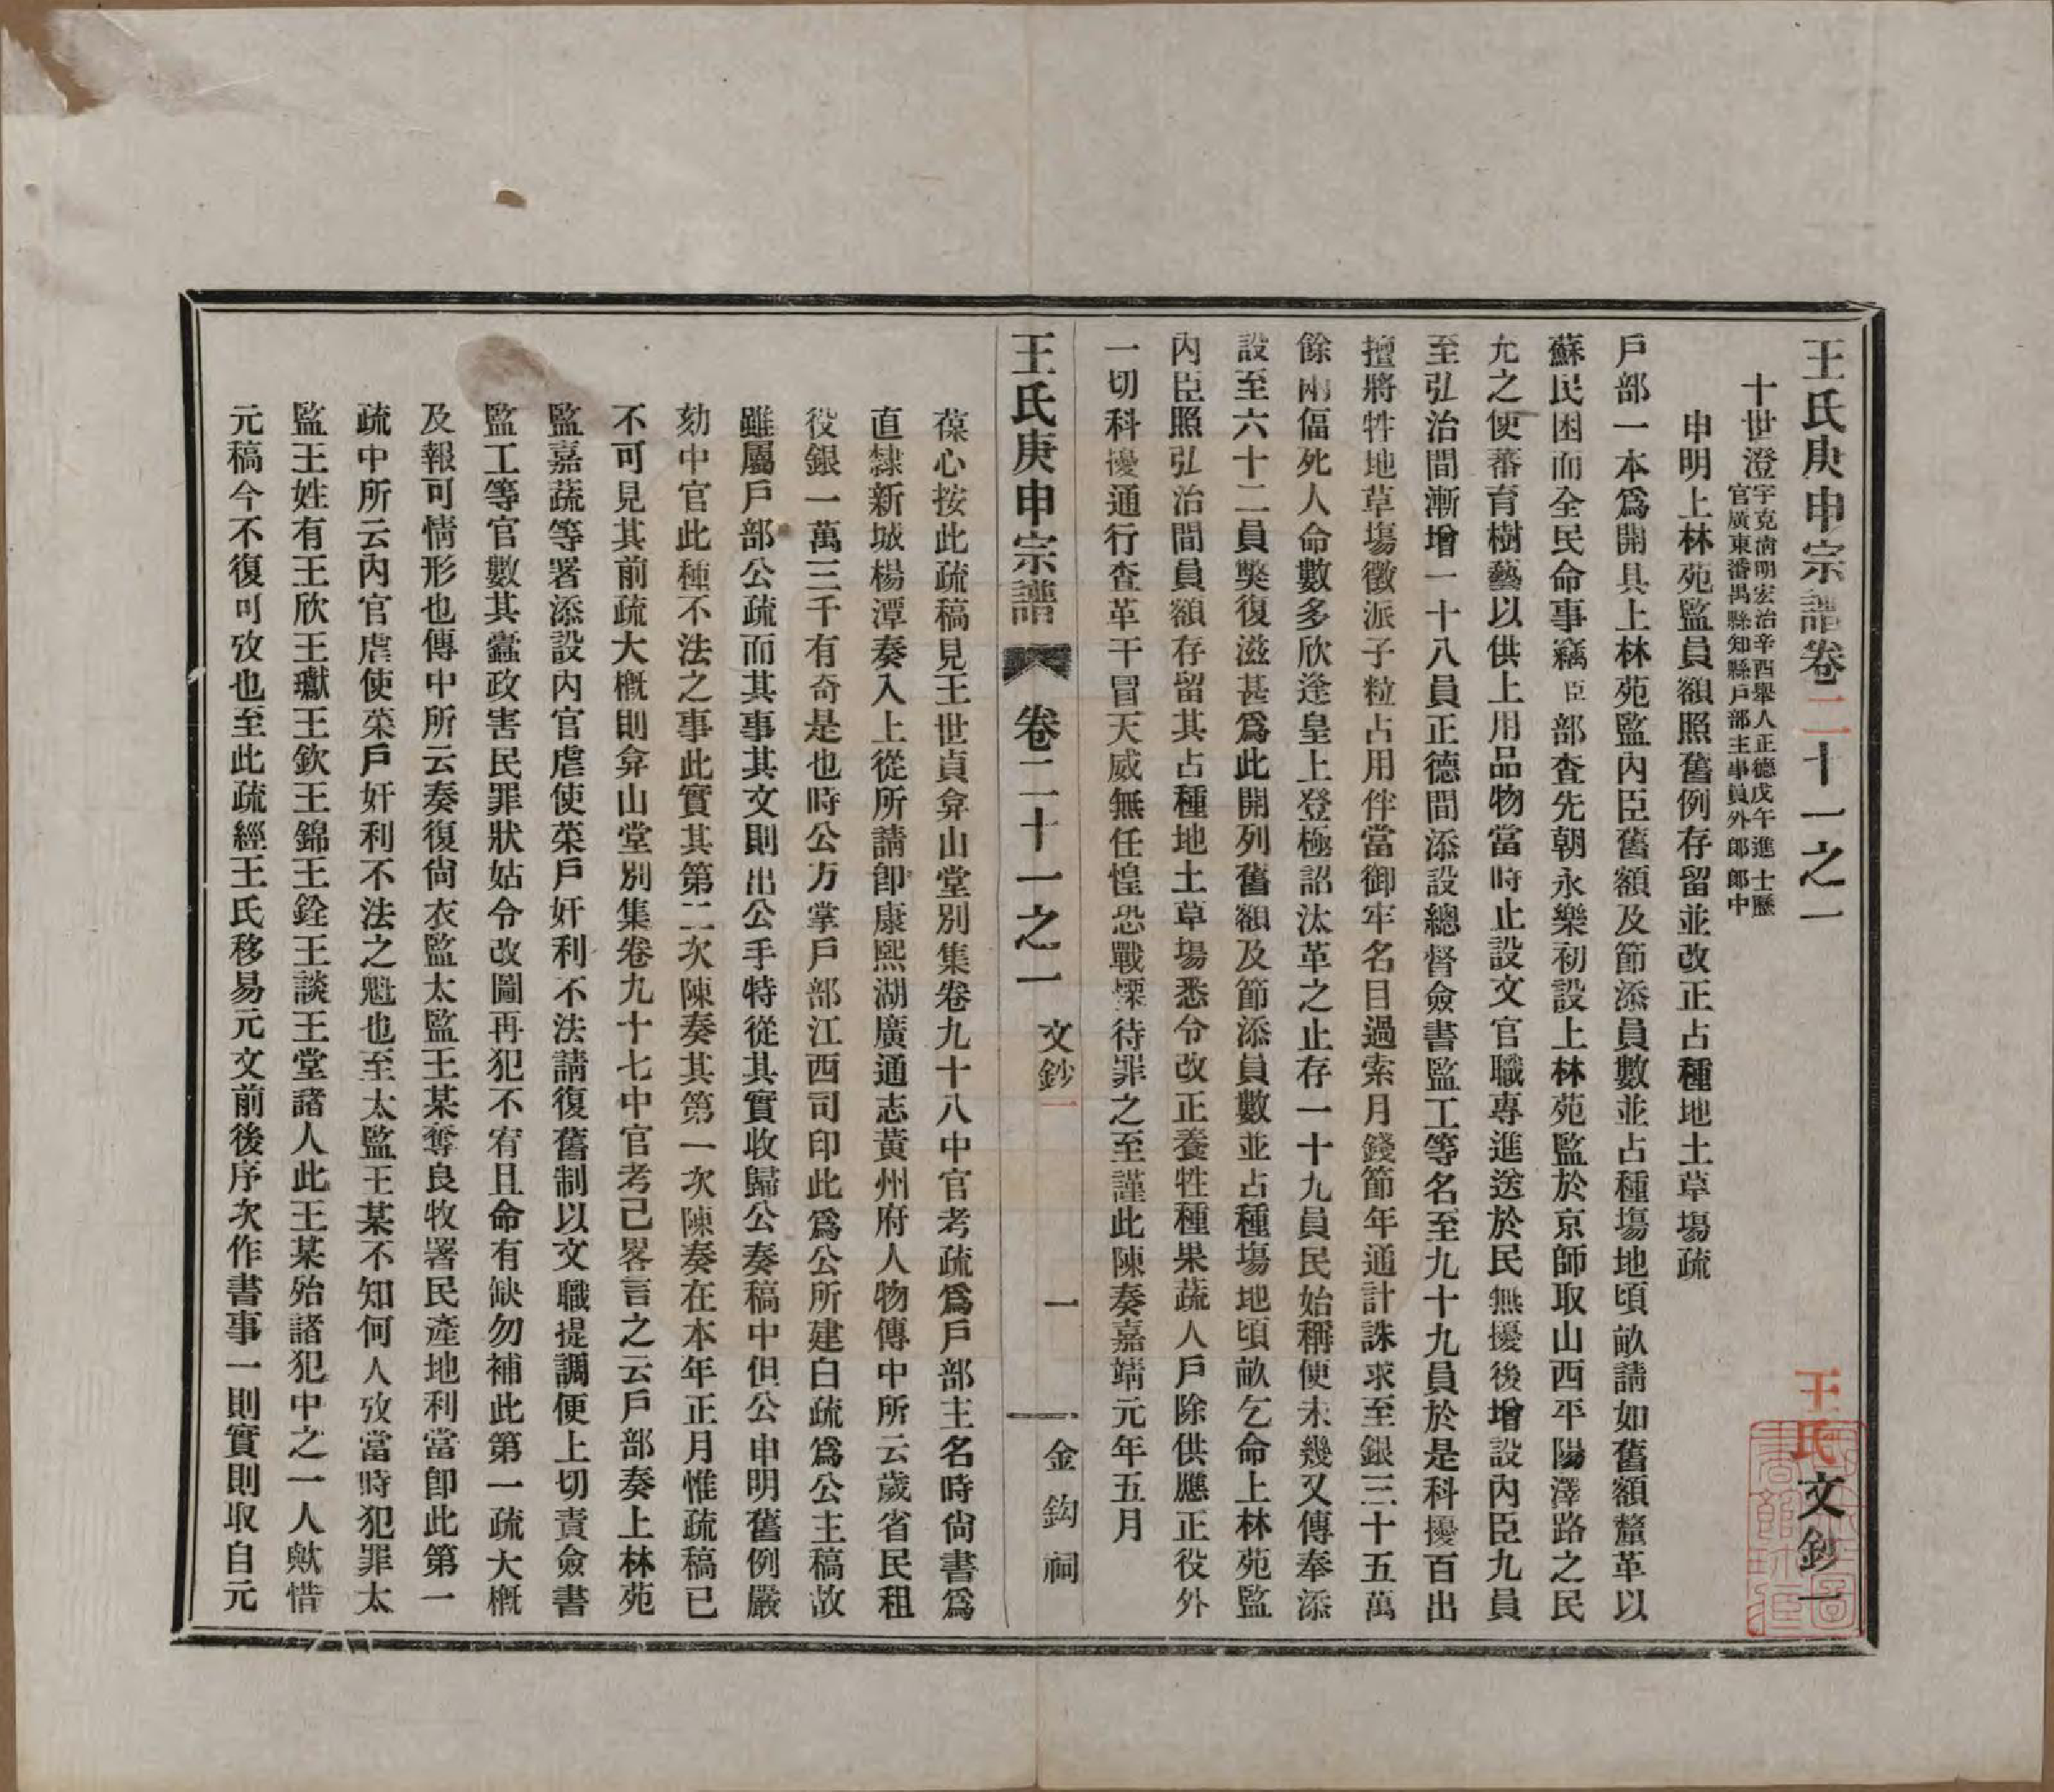 王氏庚申宗譜卷二十一之一
王氏文鈔一
十世澄字克淸明宏治辛酉舉人正德戊午進士歷
官廣東番禺縣知縣戶部主事員外郎郎中
申明上林苑監員額照舊例存留並改正占種地土草塲疏
戶部一本爲開具上林苑監內臣舊額及節添員數並占種塲地頃畝請如舊額釐革以
蘇民困而全民命事竊臣部查先朝永樂初設上林苑監於京師取山西平陽澤路之民
允之使蕃育樹藝以供上用品物當時止設文官職專進送於民無擾後增設內臣九員
至弘治間漸增一十八員正德間添設總督僉書監工等名至九十九員於是科擾百出
擅將牲地草塲徵派子粒占用伴當御牢名目過索月錢節年通計誅求至銀三十五萬
餘兩偪死人命數多欣逢皇上登極詔汰革之止存一十九員民始稱便未幾又傳奉添
設至六十二員獘復滋甚爲此開列舊額及節添員數並占種塲地頃畝乞命上林苑監
內臣照弘治間員額存留其占種地土草塲悉令改正養牲種果蔬人戶除供應正役外
一切科擾通行查革干冒天威無任惶恐戰慄待罪之至謹此陳奏嘉靖元年五月
王氏庚申宗譜 卷二十一之一 文鈔一 一 金鈎祠
葆心按此疏稿見王世貞弇山堂別集卷九十八中官考疏爲戶部主名時尙書爲
直隸新城楊潭奏入上從所請卽康熙湖廣通志黃州府人物傳中所云歲省民租
役銀一萬三千有奇是也時公方掌戶部江西司印此爲公所建白疏爲公主稿故
雖屬戶部公疏而其事其文則出公手特從其實收歸公奏稿中但公申明舊例嚴
劾中官此種不法之事此實其第二次陳奏其第一次陳奏在本年正月惟疏稿已
不可見其前疏大槪則弇山堂別集卷九十七中官考己畧言之云戶部奏上林苑
監嘉蔬等署添設內官虐使菜戶奸利不法請復舊制以文職提調便上切責僉書
監工等官數其蠹政害民罪狀姑令改圖再犯不宥且命有缺勿補此第一疏大槪
及報可情形也傳中所云奏復尙衣監太監王某奪良牧署民產地利當卽此第一
疏中所云內官虐使菜戶奸利不法之魁也至太監王某不知何人攷當時犯罪太
監王姓有王欣王瓛王欽王錦王銓王談王堂諸人此王某殆諸犯中之一人歟惜
元稿今不復可攷也至此疏經王氏移易元文前後序次作書事一則實則取自元